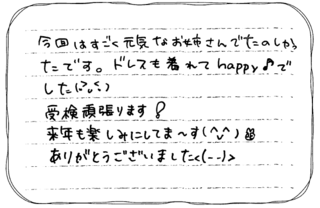 今回はすごく元気なお姉さんでたのしかっ
たです。ドレスも着れてhappy♪で
した(^o^)
受検頑張ります!
来年も楽しみにしてま〜す(^^)
ありがとうございました<(--)>